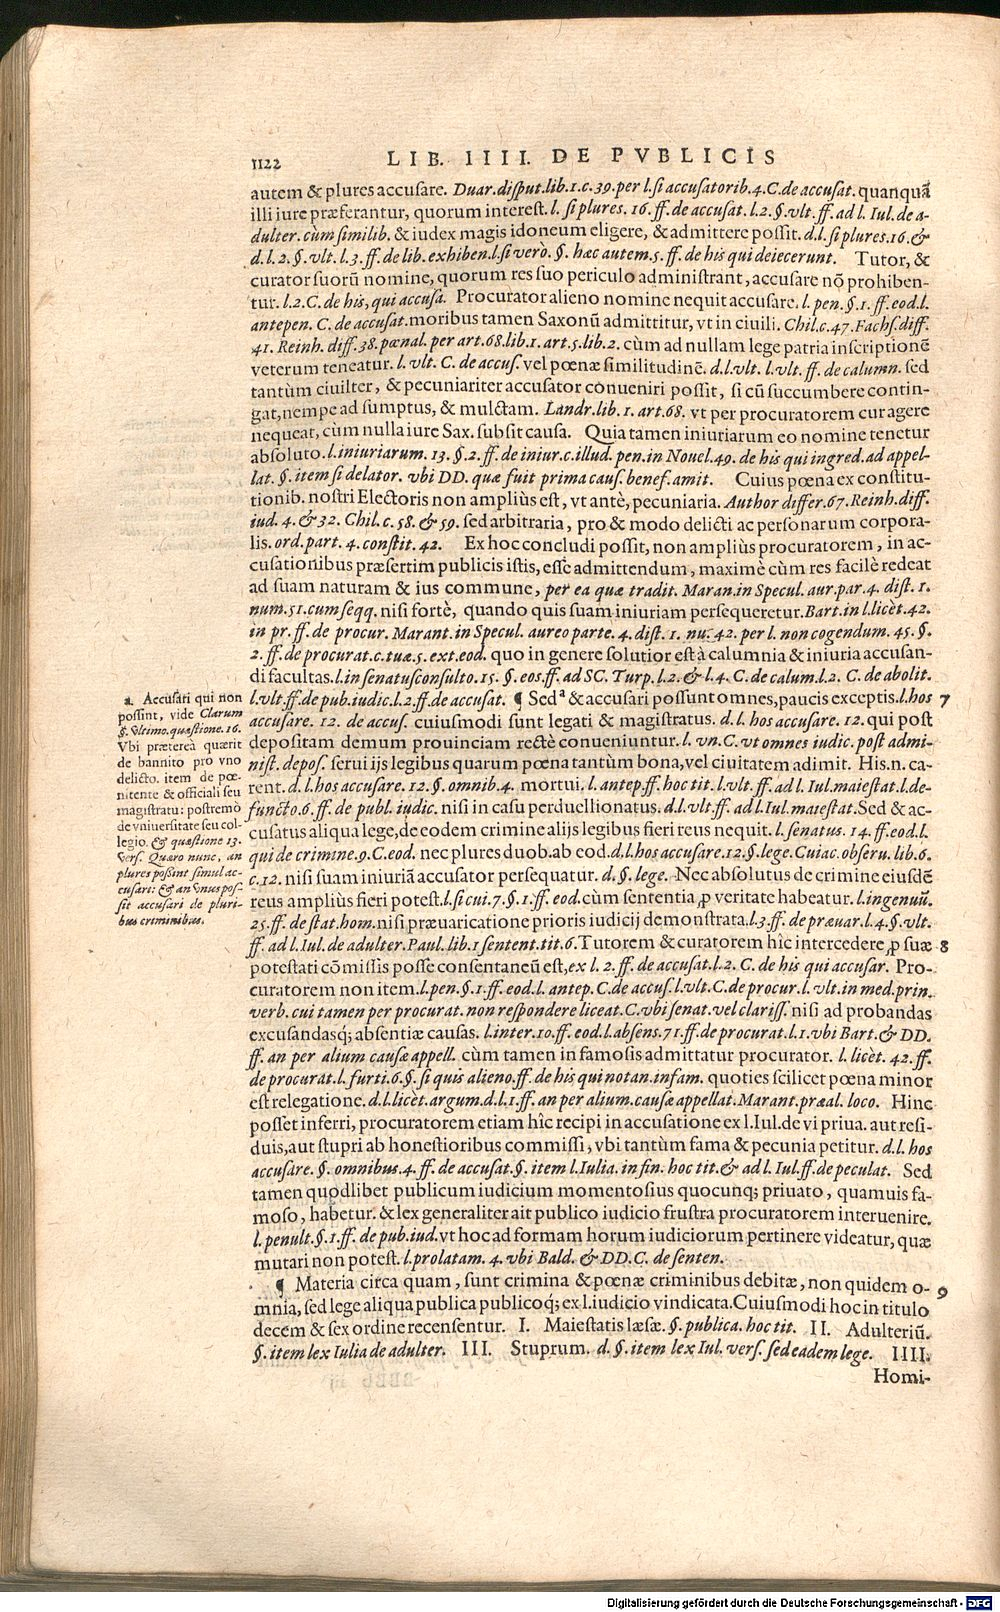 1122 LIB. IIII. DE PVBLICIS
autem & plures accusare. Duar. disput. lib. 1. c. 39. per l. si accusatorib. 4. C. de accusat. quanquã
illi iure præferantur, quorum interest. l. si plures. 16. ff. de accusat. l. 2. §. vlt. ff. ad l. Iul. de a-
dulter. cùm similib. & iudex magis idoneum eligere, & admittere possit. d. l. si plures. 16. &
d. l. 2. §. vlt. l. 3. ff. de lib. exhiben. l. si verò. §. hæc autem. 5. ff. de his qui deiecerunt. Tutor, &
curator suorũ nomine, quorum res suo periculo administrant, accusare nõ prohiben-
tur. l. 2. C. de his, qui accusa. Procurator alieno nomine nequit accusare. l. pen. §. 1. ff. eod. l.
antepen. C. de accusat. moribus tamen Saxonũ admittitur, vt in ciuili. Chil. c. 47. Fachs. diff.
41. Reinh. diff. 38. pœnal. per art. 68. lib. 1. art. 5. lib. 2. cùm ad nullam lege patria inscriptionẽ
veterum teneatur. l. vlt. C. de accus. vel pœnæ similitudinẽ. d. l. vlt. l. vlt. ff. de calumn. sed
tantùm ciuilter, & pecuniariter accusator conueniri possit, si cũ succumbere contin-
gat, nempe ad sumptus, & mulctam. Landr. lib. 1. art. 68. vt per procuratorem cur agere
nequeat, cùm nulla iure Sax. subsit causa. Quia tamen iniuriarum eo nomine tenetur
absoluto. l. iniuriarum. 13. §. 2. ff. de iniur. c. illud. pen. in Nouel. 49. de his qui ingred. ad appel-
lat. §. item si delator. vbi DD. quæ fuit prima caus. benef. amit. Cuius pœna ex constitu-
tionib. nostri Electoris non ampliùs est, vt antè, pecuniaria. Author differ. 67. Reinh. diff.
iud. 4. & 32. Chil. c. 58. & 59. sed arbitraria, pro & modo delicti ac personarum corpora-
lis. ord. part. 4. constit. 42. Ex hoc concludi possit, non ampliùs procuratorem, in ac-
cusationibus præsertim publicis istis, esse admittendum, maximè cùm res facilè redeat
ad suam naturam & ius commune, per ea quæ tradit. Maran. in Specul. aur. par. 4. dist. 1.
num. 51. cum seqq. nisi fortè, quando quis suam iniuriam persequeretur. Bart. in l. licèt. 42.
in pr. ff. de procur. Marant. in Specul. aureo parte. 4. dist. 1. nu. 42. per l. non cogendum. 45. §.
2. ff. de procurat. c. tuæ. 5. ext. eod. quo in genere solutior est à calumnia & iniuria accusan-
di facultas. l. in senatusconsulto. 15. §. eos. ff. ad SC. Turp. l. 2. & l. 4. C. de calum. l. 2. C. de abolit.
l. vlt. ff. de pub. iudic. l. 2. ff. de accusat. ¶ Sed ª & accusari possunt omnes, paucis exceptis. l. hos 7
accusare. 12. de accus. cuiusmodi sunt legati & magistratus. d. l. hos accusare. 12. qui post
depositam demum prouinciam rectè conueniuntur. l. vn. C. vt omnes iudic. post admi-
nist. depos. serui ijs legibus quarum pœna tantùm bona, vel ciuitatem adimit. His. n. ca-
rent. d. l. hos accusare. 12. §. omnib. 4. mortui. l. antep. ff. hoc tit. l. vlt. ff. ad l. Iul. maiestat. l. de-
functo. 6. ff. de publ. iudic. nisi in casu perduellionatus. d. l. vlt. ff. ad l. Iul. maiestat. Sed & ac-
cusatus aliqua lege, de eodem crimine alijs legibus fieri reus nequit. l. senatus. 14. ff. eod. l.
qui de crimine. 9. C. eod. nec plures duob. ab eod. d. l. hos accusare. 12. §. lege. Cuiac. obseru. lib. 6.
c. 12. nisi suam iniuriã accusator persequatur. d. §. lege. Nec absolutus de crimine eiusdẽ
reus ampliùs fieri potest. l. si cui. 7. §. 1. ff. eod. cùm sententia ꝓ veritate habeatur. l. ingenuũ.
25. ff. de stat. hom. nisi præuaricatione prioris iudicij demonstrata. l. 3. ff. de præuar. l. 4. §. vlt.
ff. ad l. Iul. de adulter. Paul. lib. 1 sentent. tit. 6. Tutorem & curatorem hîc intercedere ꝓ suæ 8
potestati cõmissis posse consentaneũ est, ex l. 2. ff. de accusat. l. 2. C. de his qui accusar. Pro-
curatorem non item. l. pen. §. 1. ff. eod. l. antep. C. de accus. l. vlt. C. de procur. l. vlt. in med. prin.
verb. cui tamen per procurat. non respondere liceat. C. vbi senat. vel clariss. nisi ad probandas
excusandasq; absentiæ causas. l. inter. 10. ff. eod. l. absens. 71. ff. de procurat. l. 1. vbi Bart. & DD.
ff. an per alium causæ appell. cùm tamen in famosis admittatur procurator. l. licèt. 42. ff.
de procurat. l. furti. 6. §. si quis alieno. ff. de his qui notan. infam. quoties scilicet pœna minor
est relegatione. d. l. licèt. argum. d. l. 1. ff. an per alium. causæ appellat. Marant. præal. loco. Hinc
posset inferri, procuratorem etiam hîc recipi in accusatione ex l. Iul. de vi priua. aut resi-
duis, aut stupri ab honestioribus commissi, vbi tantùm fama & pecunia petitur. d. l. hos
accusare. §. omnibus. 4. ff. de accusat. §. item l. Iulia. in fin. hoc tit. & ad l. Iul. ff. de peculat. Sed
tamen quodlibet publicum iudicium momentosius quocunq; priuato, quamuis fa-
moso, habetur. & lex generaliter ait publico iudicio frustra procuratorem interuenire.
l. penult. §. 1. ff. de pub. iud. vt hoc ad formam horum iudiciorum pertinere videatur, quæ
mutari non potest. l. prolatam. 4. vbi Bald. & DD. C. de senten.
¶ Materia circa quam, sunt crimina & pœnæ criminibus debitæ, non quidem o- 9
mnia, sed lege aliqua publica publicoq; ex l. iudicio vindicata. Cuiusmodi hoc in titulo
decem & sex ordine recensentur. I. Maiestatis læsæ. §. publica. hoc tit. II. Adulteriũ.
§. item lex Iulia de adulter. III. Stuprum. d. §. item lex Iul. vers. sed eadem lege. IIII.
Homi-
a. Accusati qui non
possint, vide Clarum
§. vltimo. quæstione. 16.
Vbi præterea quærit
de bannito pro vno
delicto. item de pœ-
nitente & officiali seu
magistratu: postremò
de vniuersitate seu col-
legio. & quæstione 13.
vers. Quæro nunc, an
plures possint simul ac-
cusari: & an vnus pos-
sit accusari de pluri-
bus criminibus.
Digitalisierung gefördert durch die Deutsche Forschungsgemeinschaft - DFG